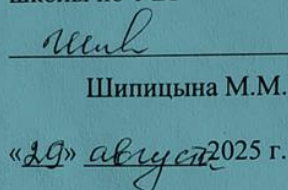 Шипицына М.М.
«29» август 2025 г.